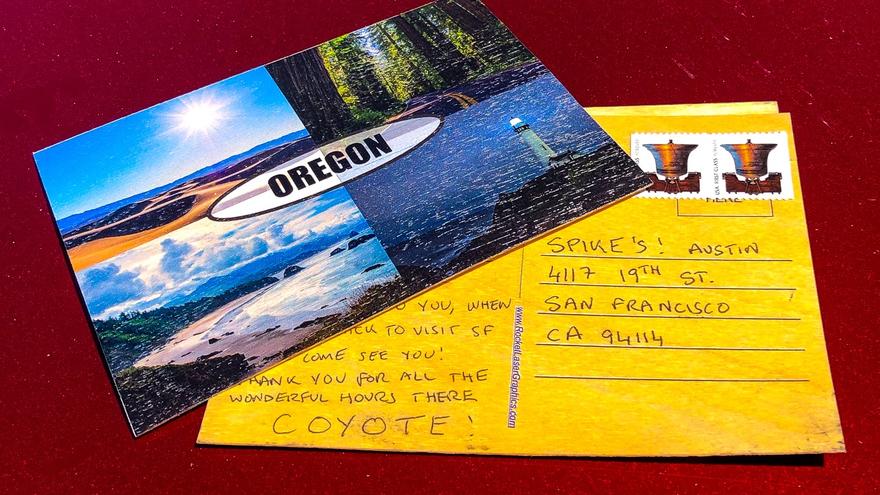 OREGON
USA FIRST-CLASS
HERE
SPIKE'S! AUSTIN
4117 19TH ST.
SAN FRANCISCO
CA 94114
www.RocketLaserGraphics.com
TO YOU, WHEN
BACK TO VISIT SF
COME SEE YOU!
THANK YOU FOR ALL THE
WONDERFUL HOURS THERE
COYOTE!